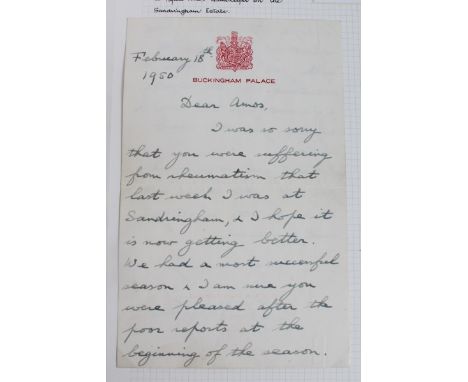 Sandringham Estate.
February 18th
1950
BUCKINGHAM PALACE
Dear Amos,
I was so sorry
that you were suffering
from rheumatism that
last week I was at
Sandringham, & I hope it
is now getting better.
We had a most successful
season & I am sure you
were pleased after the
poor reports at the
beginning of the season.